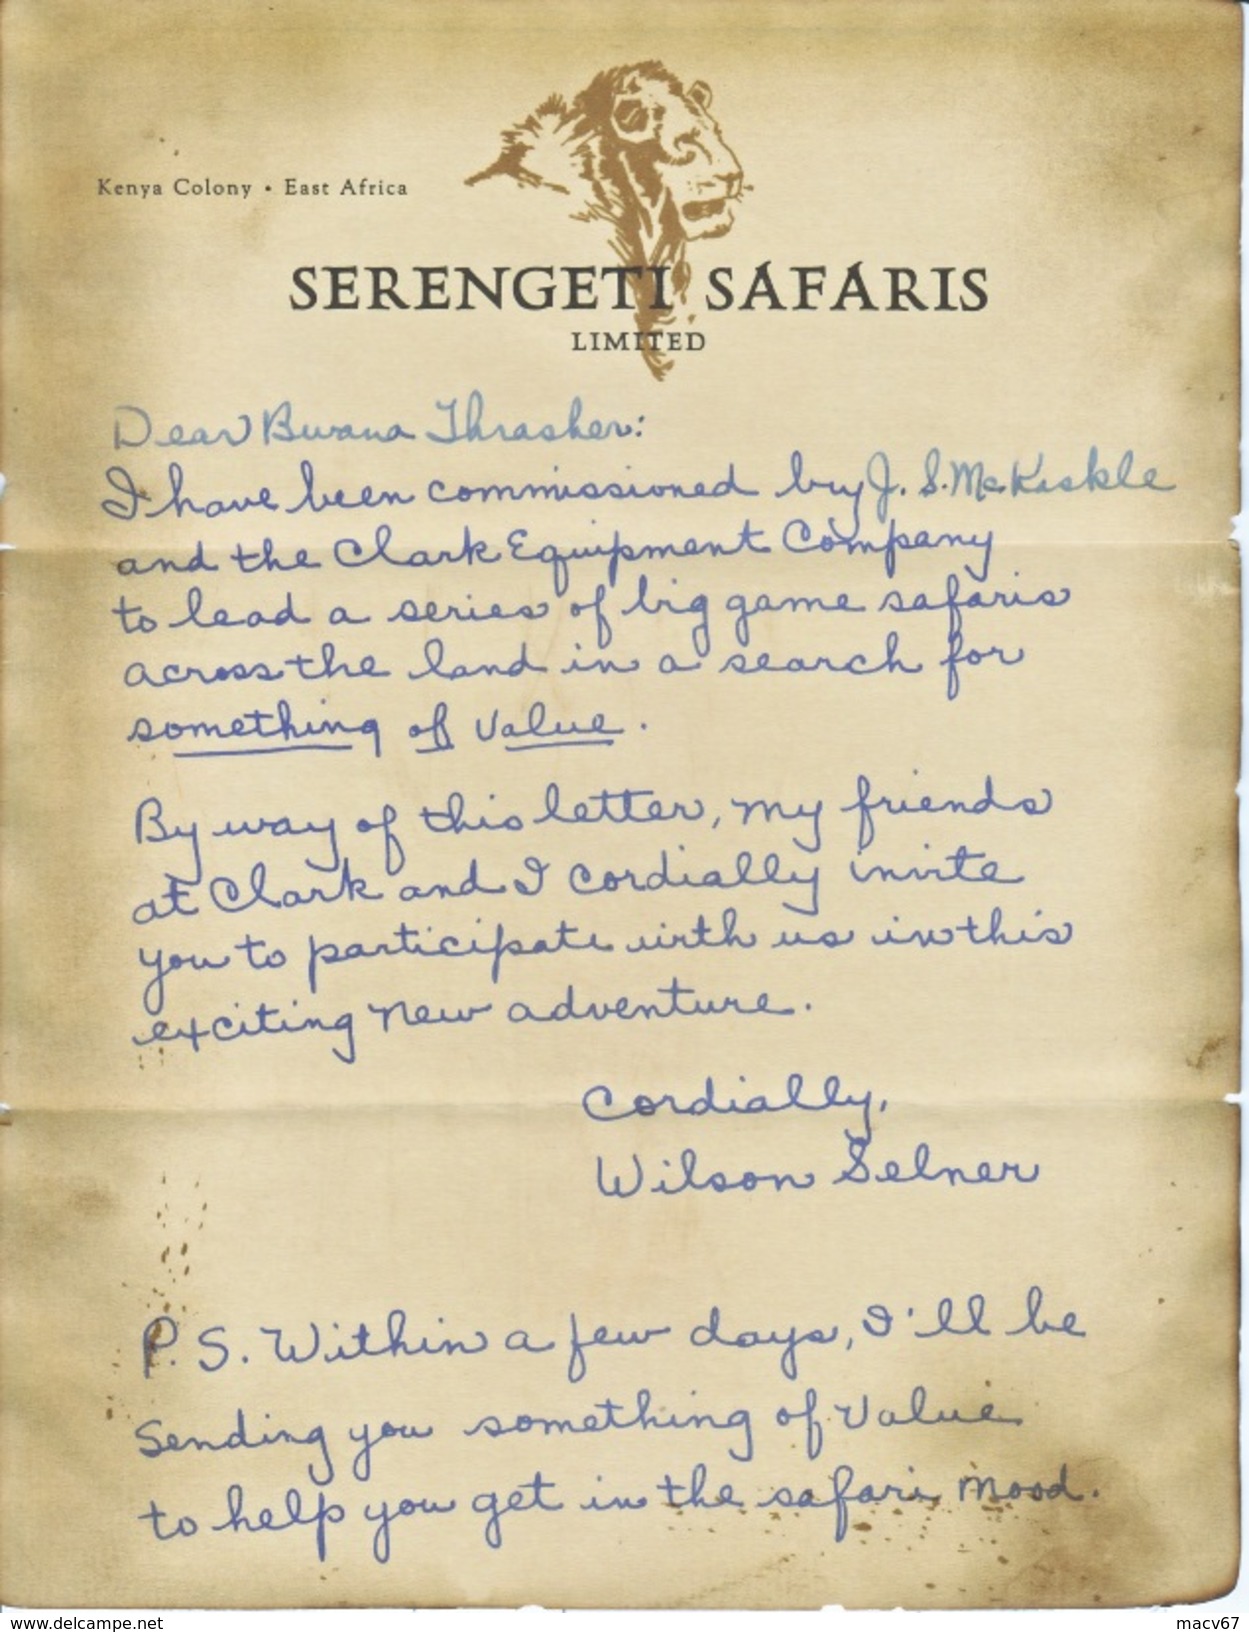 Kenya Colony • East Africa
SERENGETI SAFARIS
LIMITED
Dear Bwana Thrasher:
I have been commissioned by J. S. McKaskle
and the Clark Equipment Company
to lead a series of big game safaris
across the land in a search for
something of value.
By way of this letter, my friends
at Clark and I cordially invite
you to participate with us in this
exciting new adventure.
Cordially,
Wilson Selner
P.S. Within a few days, I'll be
sending you something of value
to help you get in the safari mood.
www.delcampe.net
macv67